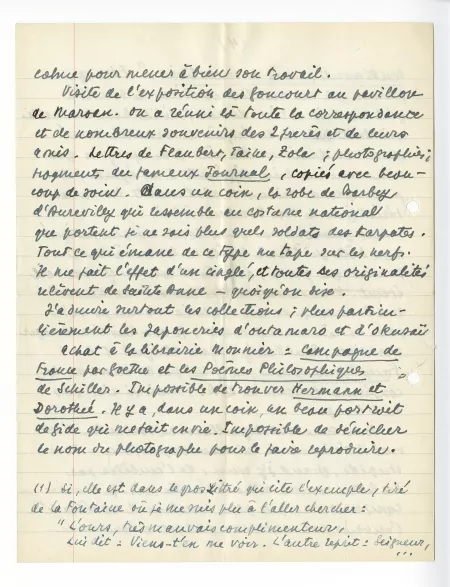 calme pour mener à bien son travail.
Visite de l'exposition des Goncourt au pavillon
de Marsan. On a réuni là toute la correspondance
et de nombreux souvenirs des 2 frères et de leurs
amis. Lettres de Flaubert, Taine, Zola ; photographies ;
fragments du fameux Journal, copiés avec beau-
coup de soin. Dans un coin, la robe de Barbey
d'Aurevilly qui ressemble au costume national
que portent je ne sais plus quels soldats des Karpates.
Tout ce qui émane de ce type me tape sur les nerfs.
Il me fait l'effet d'un cinglé, et toutes ses originalités
relèvent de Sainte Anne – quoiqu'on dise.
J'admire surtout les collections ; plus particu-
lièrement les Japoneries d'Outamaro et d'Okusaï
Achat à la librairie Monnier : Campagne de
France par Goethe et les Poèmes Philosophiques
de Schiller. Impossible de trouver Hermann et
Dorothé. Il y a, dans un coin, un beau portrait
de Gide qui me fait envie. Impossible de dénicher
le nom du photographe pour le faire reproduire.
(1) Si, elle est dans le gros Littré qui cite l'exemple, tiré
de La Fontaine où je me suis plu à l'aller chercher :
"L'ours, très mauvais complimenteur,
Lui dit : Viens-t'en me voir. L'autre reprit : Seigneur,
...